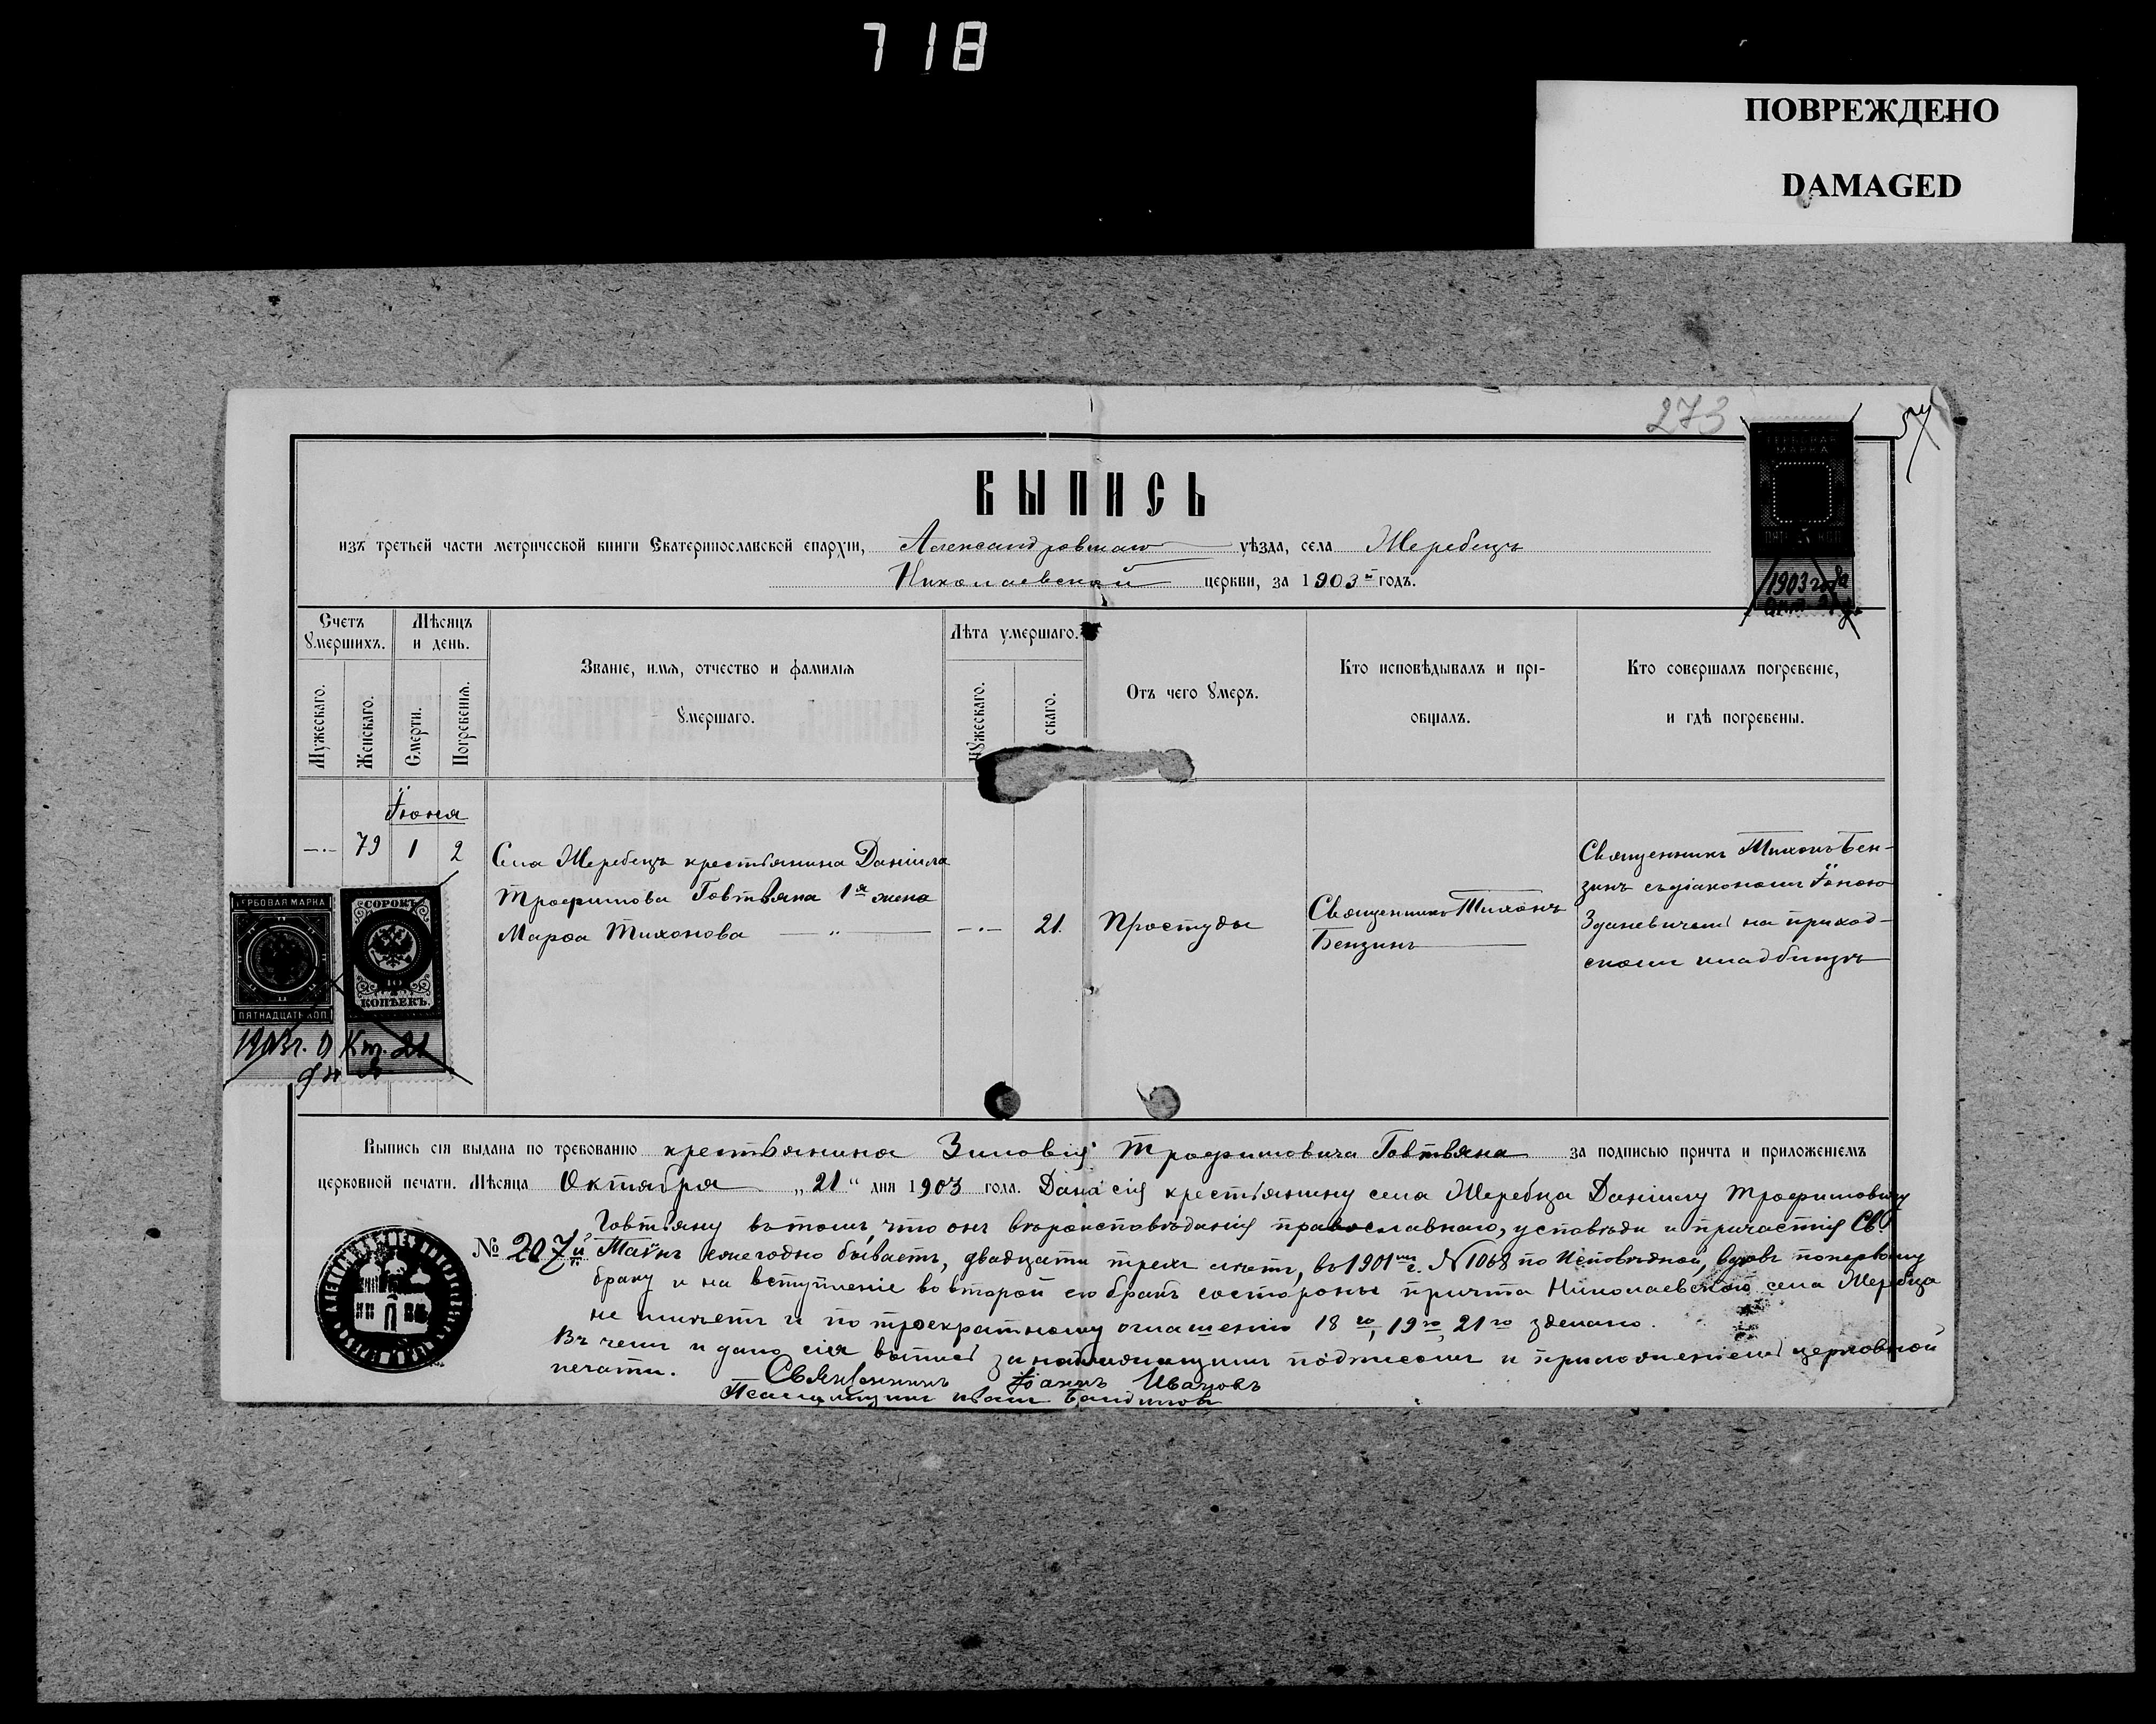 718
ПОВРЕЖДЕНО
DAMAGED
273
ГЕРБОВАЯ МАРКА
5
ПЯТЬ КОП
1903 года
Окт. 21 дн
ВЫПИСЬ
изъ третьей части метрической книги Екатеринославской епархіи, Александровскаго уѣзда, села Жеребецъ
Николаевской церкви, за 1903й годъ.
Счетъ умершихъ.
Мужескаго.
Женскаго.
Мѣсяцъ и день.
Смерти.
Погребенія.
Званіе, имя, отчество и фамилія
умершаго.
Лѣта умершаго.
Мужескаго.
скаго.
Отъ чего умеръ.
Кто исповѣдывалъ и прі-
общалъ.
Кто совершалъ погребеніе,
и гдѣ погребены.
Іюня
—·— 79 1 2
Села Жеребецъ крестьянина Даніила
Трофимова Говтвяна 1я жена
Марѳа Тихонова — „ —
—·— 21.
Простуды
Священникъ Тихонъ
Бензинъ
Священникъ Тихонъ Бен-
зинъ съ діакономъ Іоною
Зданевичемъ на приход-
скомъ кладбищѣ
ГЕРБОВАЯ МАРКА
ПЯТНАДЦАТЬ КОП
СОРОКЪ
40
КОПѢЕКЪ.
1903 г. Окт. 21
дн я
Выпись сія выдана по требованію крестьянина Зиновія Трофимовича Говтвяна за подписью причта и приложеніемъ
церковной печати. Мѣсяца Октября „21“ дня 1903 года. Дана сія крестьянину села Жеребца Даніилу Трофимовичу
Говтвяну въ томъ, что онъ вѣроисповѣданія православнаго, у исповѣди и причастія Св.
№ 207й Таинъ ежегодно бываетъ, двадцати трехъ лѣтъ, въ 1901мъ г. № 1068 по Исповѣдной, вдовъ по первому
браку и на вступленіе во второй сю бракъ со стороны причта Николаевской села Жеребца
не имѣетъ и по троекратному оглашенію 18го, 19го, 21го зделано.
Въ чемъ и дана сія выпись за надлежащимъ подписомъ и приложеніемъ церковной
печати. Священникъ Іоаннъ Ивановъ
Псаломщикъ